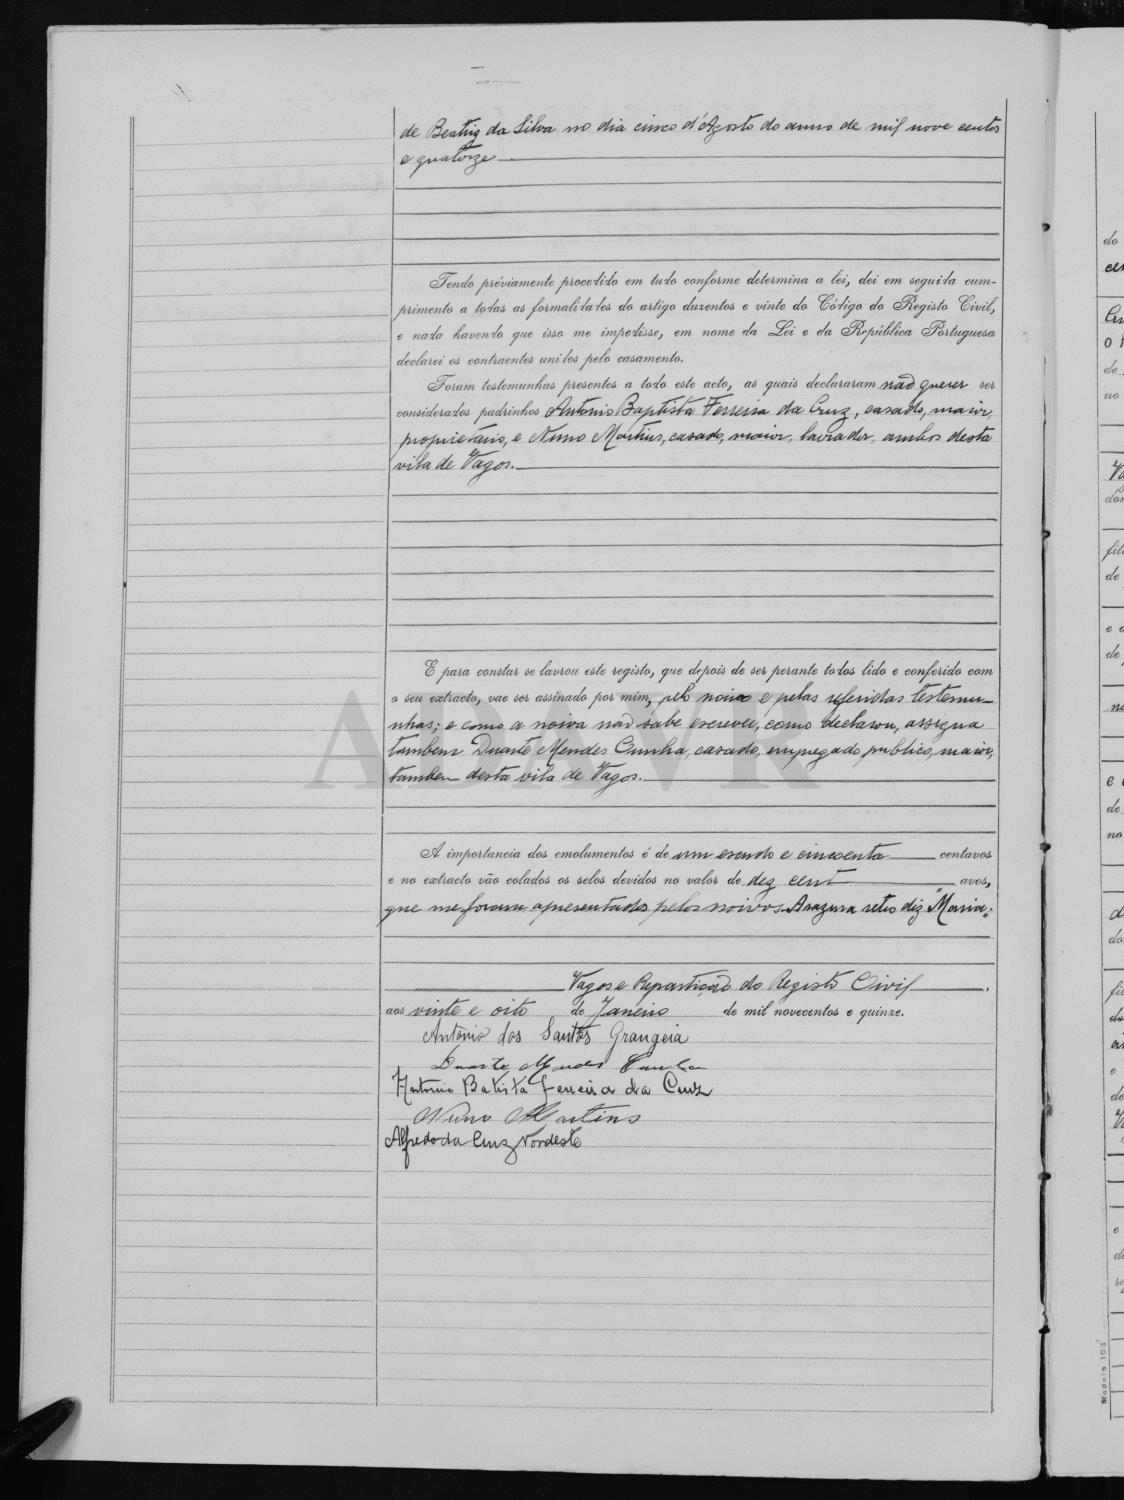 de Beatriz da Silva no dia cinco d'Agosto do anno de mil nove centos
e quatorze
Tendo préviamente procedido em tudo conforme determina a lei, dei em seguida cum-
primento a todas as formalidades do artigo duzentos e vinte do Código do Registo Civil,
e nada havendo que isso me impedisse, em nome da Lei e da República Portuguesa
declarei os contraentes unidos pelo casamento.
Foram testemunhas presentes a todo este acto, as quais declararam não querer ser
considerados padrinhos Antonio Baptista Ferreira da Cruz, casado, maior,
proprietario, e Nuno Martins, casado, maior, lavrador, ambos desta
vila de Vagos.
E para constar se lavrou este registo, que depois de ser perante todos lido e conferido com
o seu extracto, vae ser assinado por mim, pelo noivo e pelas referidas testemu-
nhas; e como a noiva não sabe escrever, como declarou, assigna
tambem Duarte Mendes Cunha, casado, empregado publico, maior,
tambem desta vila de Vagos.
A importancia dos emolumentos é de um escudo e cincoenta centavos
e no extracto vão colados os selos devidos no valor de dez cent avos,
que me foram apresentados pelos noivos. A razura retro diz "Maria".
Vagos e Repartição do Registo Civil
aos vinte e oito de Janeiro de mil novecentos e quinze.
Antonio dos Santos Grangeia
Duarte Mendes Cunha
Antonio Batista Ferreira da Cruz
Nuno Martins
Alfredo da Cruz Nordeste
ADAVR
Modelo 103